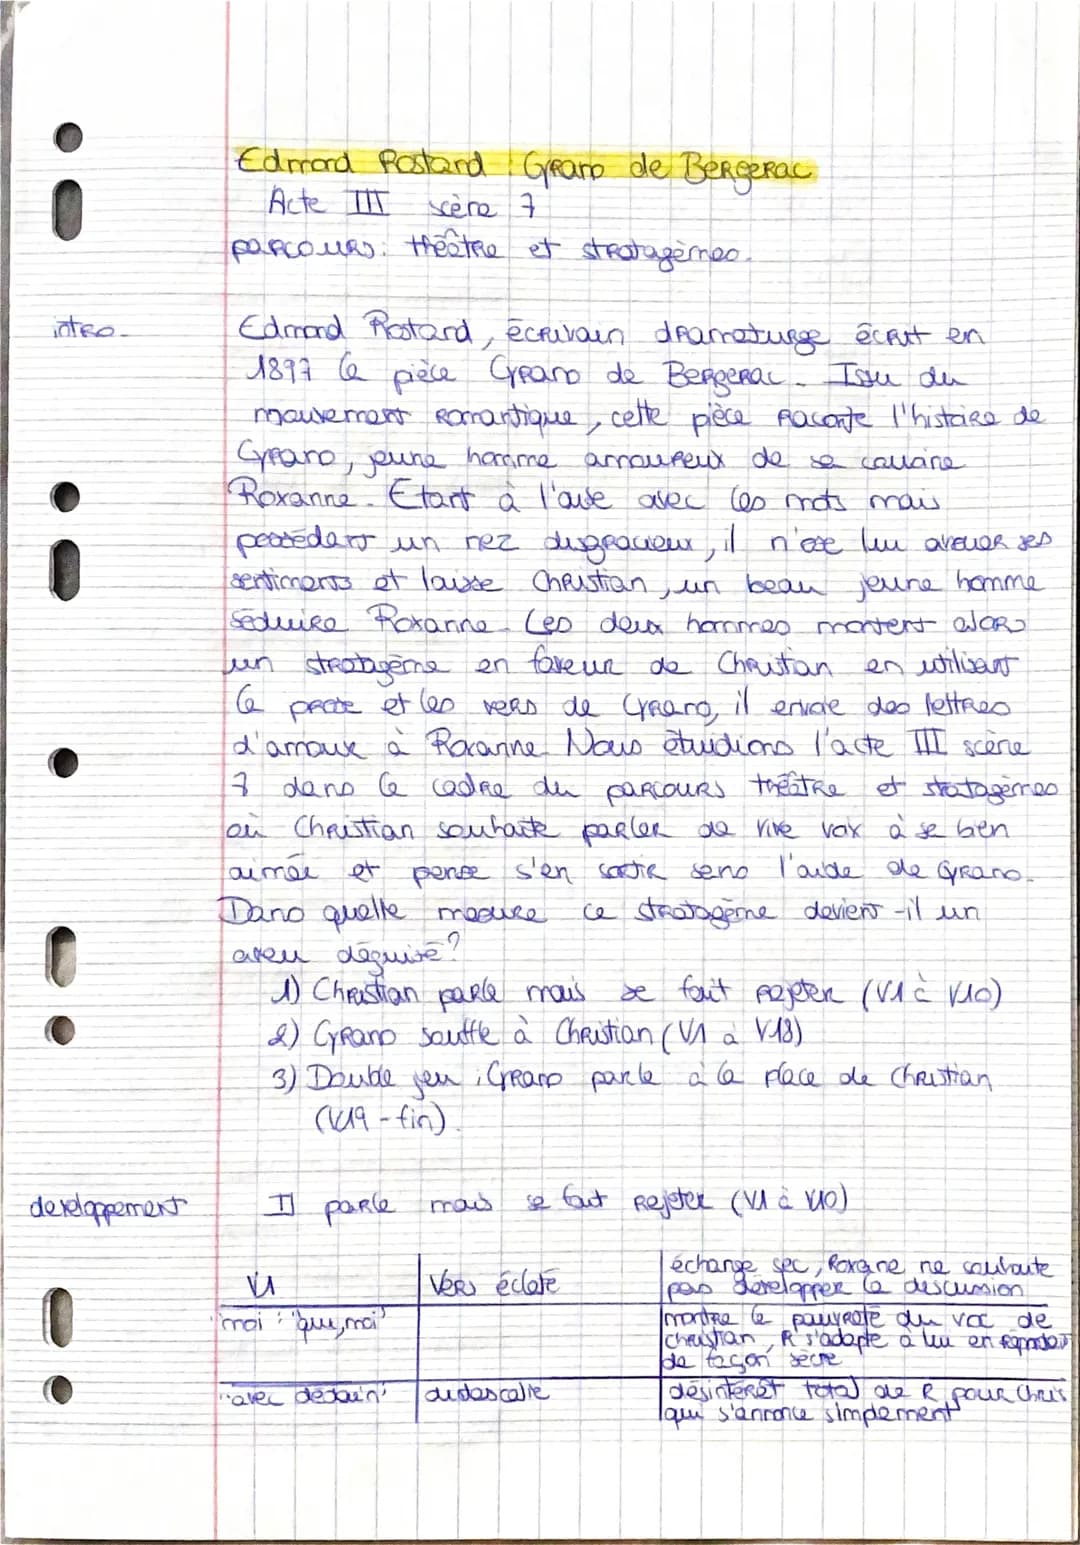 Edmond Rostand : Cyrano de Bergerac
Acte III scène 7
parcours : théâtre et stratagèmes.
intro -
Edmond Rostand, écrivain dramaturge écrit en
1897 la pièce Cyrano de Bergerac. Issu du
mouvement romantique, cette pièce raconte l'histoire de
Cyrano, jeune homme amoureux de sa cousine
Roxanne. Etant à l'aise avec les mots mais
possédant un nez disgracieux, il n'ose lui avouer ses
sentiments et laisse Christian, un beau jeune homme
séduire Roxanne. Les deux hommes montent alors
un stratagème en faveur de Christian en utilisant
la prose et les vers de Cyrano, il envoie des lettres
d'amour à Roxanne. Nous étudions l'acte III scène
7 dans le cadre du parcours théâtre et stratagèmes
où Christian souhaite parler de vive voix à sa bien
aimée et pense s'en sortir sans l'aide de Cyrano.
Dans quelle mesure ce stratagème devient-il un
aveu déguisé ?
1) Christian parle mais se fait rejeter (V1 à V10)
2) Cyrano souffle à Christian (V1 à V18)
3) Double jeu, Cyrano parle à la place de Christian
(V19 - fin).
developpement
I) parle mais se fait rejeter (V1 à V10)
V1 Vers éclaté échange sec, Roxane ne souhaite
pas développer la discussion
moi : "qui, moi" montre la pauvreté du voc de
christian, R s'adapte à lui en répondant
de façon sèche
"avec dédain" didascalie désintérêt total de R pour Chris
qui s'annonce simplement